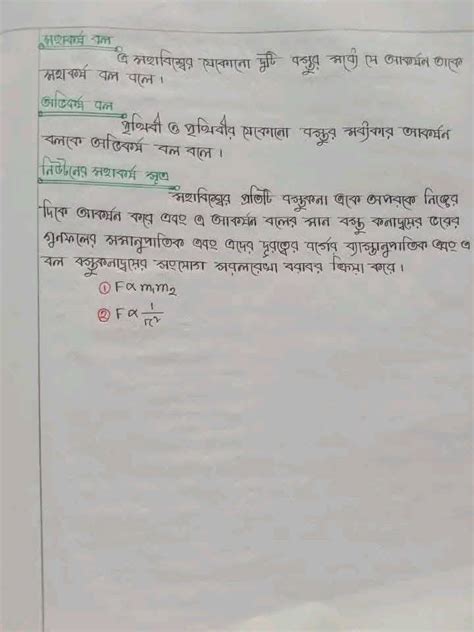 মহাকর্ষ বল
এ মহাবিশ্বের যেকোনো দুটি বস্তুর মধ্যে যে আকর্ষন তাকে
মহাকর্ষ বল বলে।
অভিকর্ষ বল
পৃথিবী ও পৃথিবীর যেকোনো বস্তুর মধ্যকার আকর্ষন
বলকে অভিকর্ষ বল বলে।
নিউটনের মহাকর্ষ সূত্র
মহাবিশ্বের প্রতিটি বস্তুকনা একে অপরকে নিজের
দিকে আকর্ষন করে এবং এ আকর্ষন বলের মান বস্তু কনাদ্বয়ের ভরের
গুনফলের সমানুপাতিক এবং এদের দূরত্বের বর্গের ব্যাস্তানুপাতিক এবং এ
বল বস্তুকনাদ্বয়ের সংযোগ সরলরেখা বরাবর ক্রিয়া করে।
① F ∝ m₁m₂
② F ∝ 1/r²